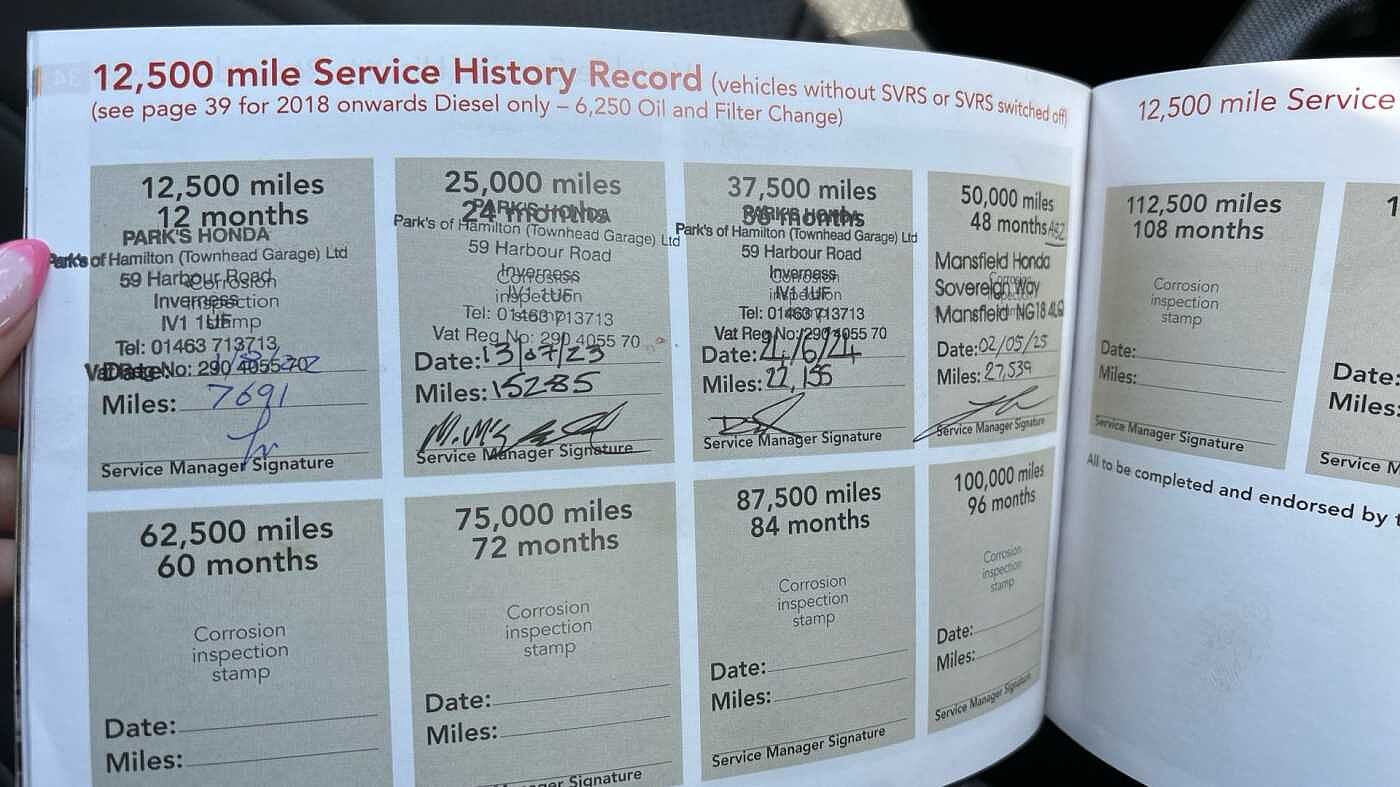 12,500 mile Service History Record (vehicles without SVRS or SVRS switched off)
(see page 39 for 2018 onwards Diesel only – 6,250 Oil and Filter Change)
12,500 miles
12 months
PARK'S HONDA
Park's of Hamilton (Townhead Garage) Ltd
59 Harbour Road
Corrosion
Inverness
inspection
IV1 1UF
stamp
Tel: 01463 713713
Vat Reg No: 290 4055 70
Date:
Miles: 7691
Service Manager Signature
25,000 miles
24 months
PARK'S HONDA
Park's of Hamilton (Townhead Garage) Ltd
59 Harbour Road
Inverness
Corrosion
inspection
IV1 1UF
Tel: 01463 713713
stamp
Vat Reg No: 290 4055 70
Date: 13/07/23
Miles: 15285
Service Manager Signature
37,500 miles
36 months
PARK'S HONDA
Park's of Hamilton (Townhead Garage) Ltd
59 Harbour Road
Inverness
Corrosion
inspection
IV1 1UF
Tel: 01463 713713
stamp
Vat Reg No: 290 4055 70
Date: 4/6/24
Miles: 22,155
Service Manager Signature
50,000 miles
48 months
Mansfield Honda
Corrosion
Sovereign Way
inspection
Mansfield NG18 4LQ
Date: 02/05/25
Miles: 27,539
Service Manager Signature
62,500 miles
60 months
Corrosion
inspection
stamp
Date:
Miles:
75,000 miles
72 months
Corrosion
inspection
stamp
Date:
Miles:
Manager Signature
87,500 miles
84 months
Corrosion
inspection
stamp
Date:
Miles:
Service Manager Signature
100,000 miles
96 months
Corrosion
inspection
stamp
Date:
Miles:
Service Manager Signature
12,500 mile Service
112,500 miles
108 months
Corrosion
inspection
stamp
Date:
Miles:
Service Manager Signature
1
Date:
Miles:
Service M
All to be completed and endorsed by t